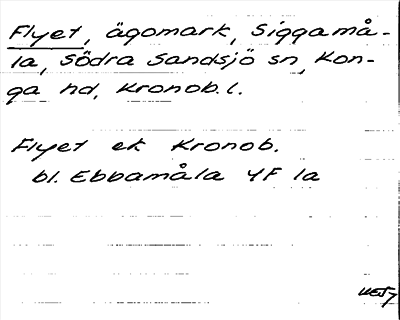 Flyet, ägomark, Siggamå-
la, Södra Sandsjö sn, Kon-
ga hd, Kronob.l.
Flyet ek Kronob.
bl. Ebbamåla 4F 1a